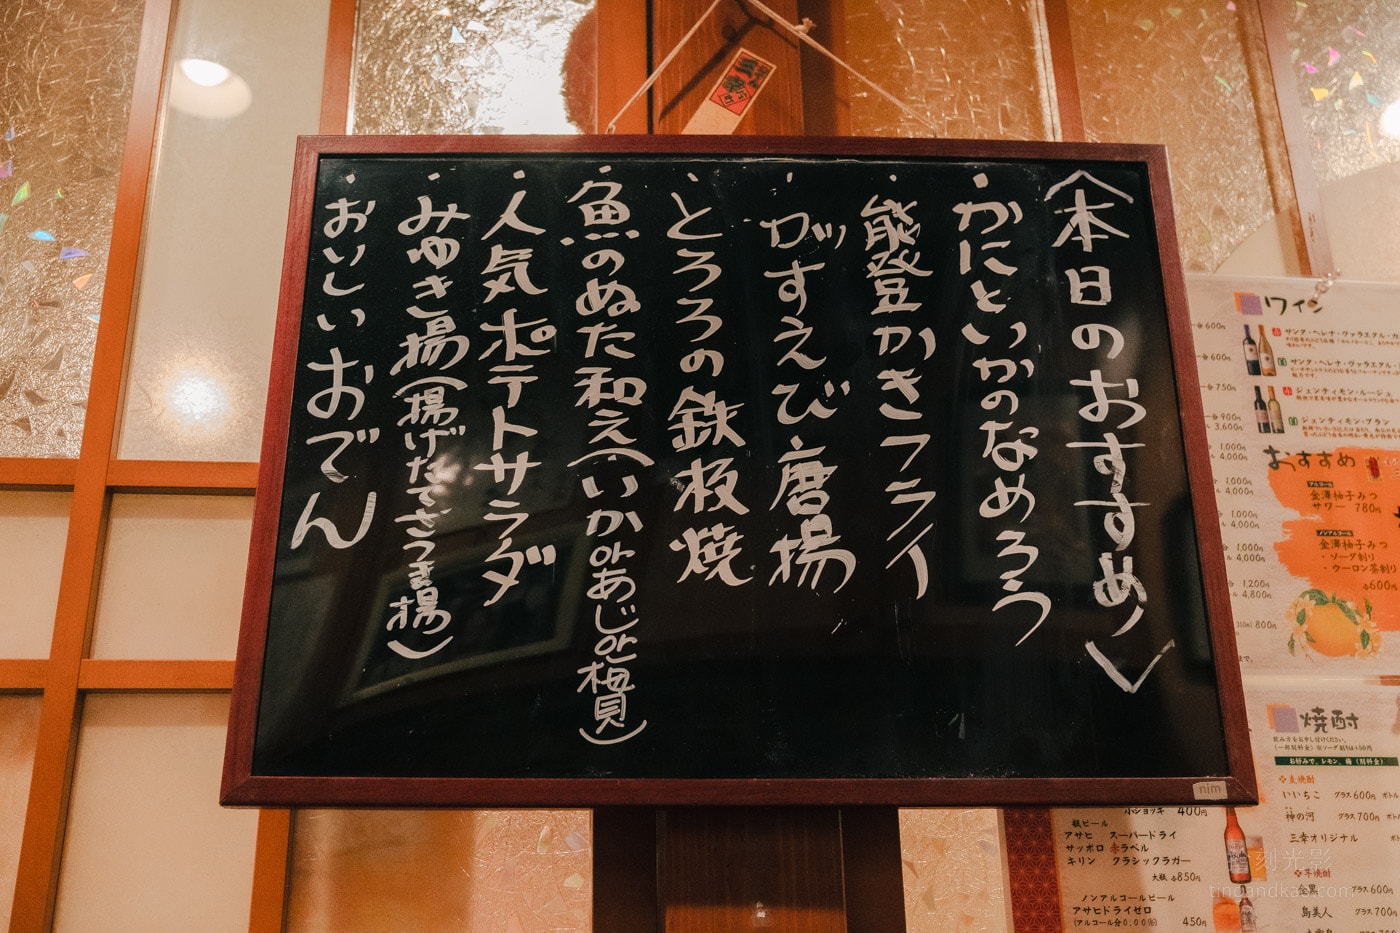 〈本日のおすすめ〉
・かにといかのなめろう
・能登かきフライ
・ガッすえび唐揚
・とろろの鉄板焼
・魚のぬた和え(いかorあじor梅貝)
・人気ポテトサラダ
・みゆき揚(揚げたてさつま揚)
・おいしいおでん
nim
ワイン
600円
600円
750円
900円
3,600円
1,000円
4,000円
1,000円
4,000円
1,000円
4,000円
1,200円
4,800円
800円
サンタ・ヘレナ・ヴァラエタル・カ
サンタ・ヘレナ・ヴァラエタル
ジェンティモン・ルージュ
ジェンティモン・ブラン
おすすめ
アルコール
金澤柚子みつ
サワー 780円
ノンアルコール
金澤柚子みつ
・ソーダ割り
・ウーロン茶割り
各600円
焼酎
飲み方をお申し付けください。
(一部別料金)※ソーダ割りは+50円
お好みで、レモン、梅(別料金)
麦焼酎
いいちこ グラス600円 ボトル
神の河 グラス700円 ボト
三幸オリジナル ボトル
芋焼酎
金黒 グラス600円
島美人 グラス700円
小ジョッキ 400円
瓶ビール
アサヒ スーパードライ
サッポロ 赤ラベル
キリン クラシックラガー
大瓶 各850円
ノンアルコールビール
アサヒドライゼロ
(アルコール分0.00%) 450円
刻光影
tingandkas.com